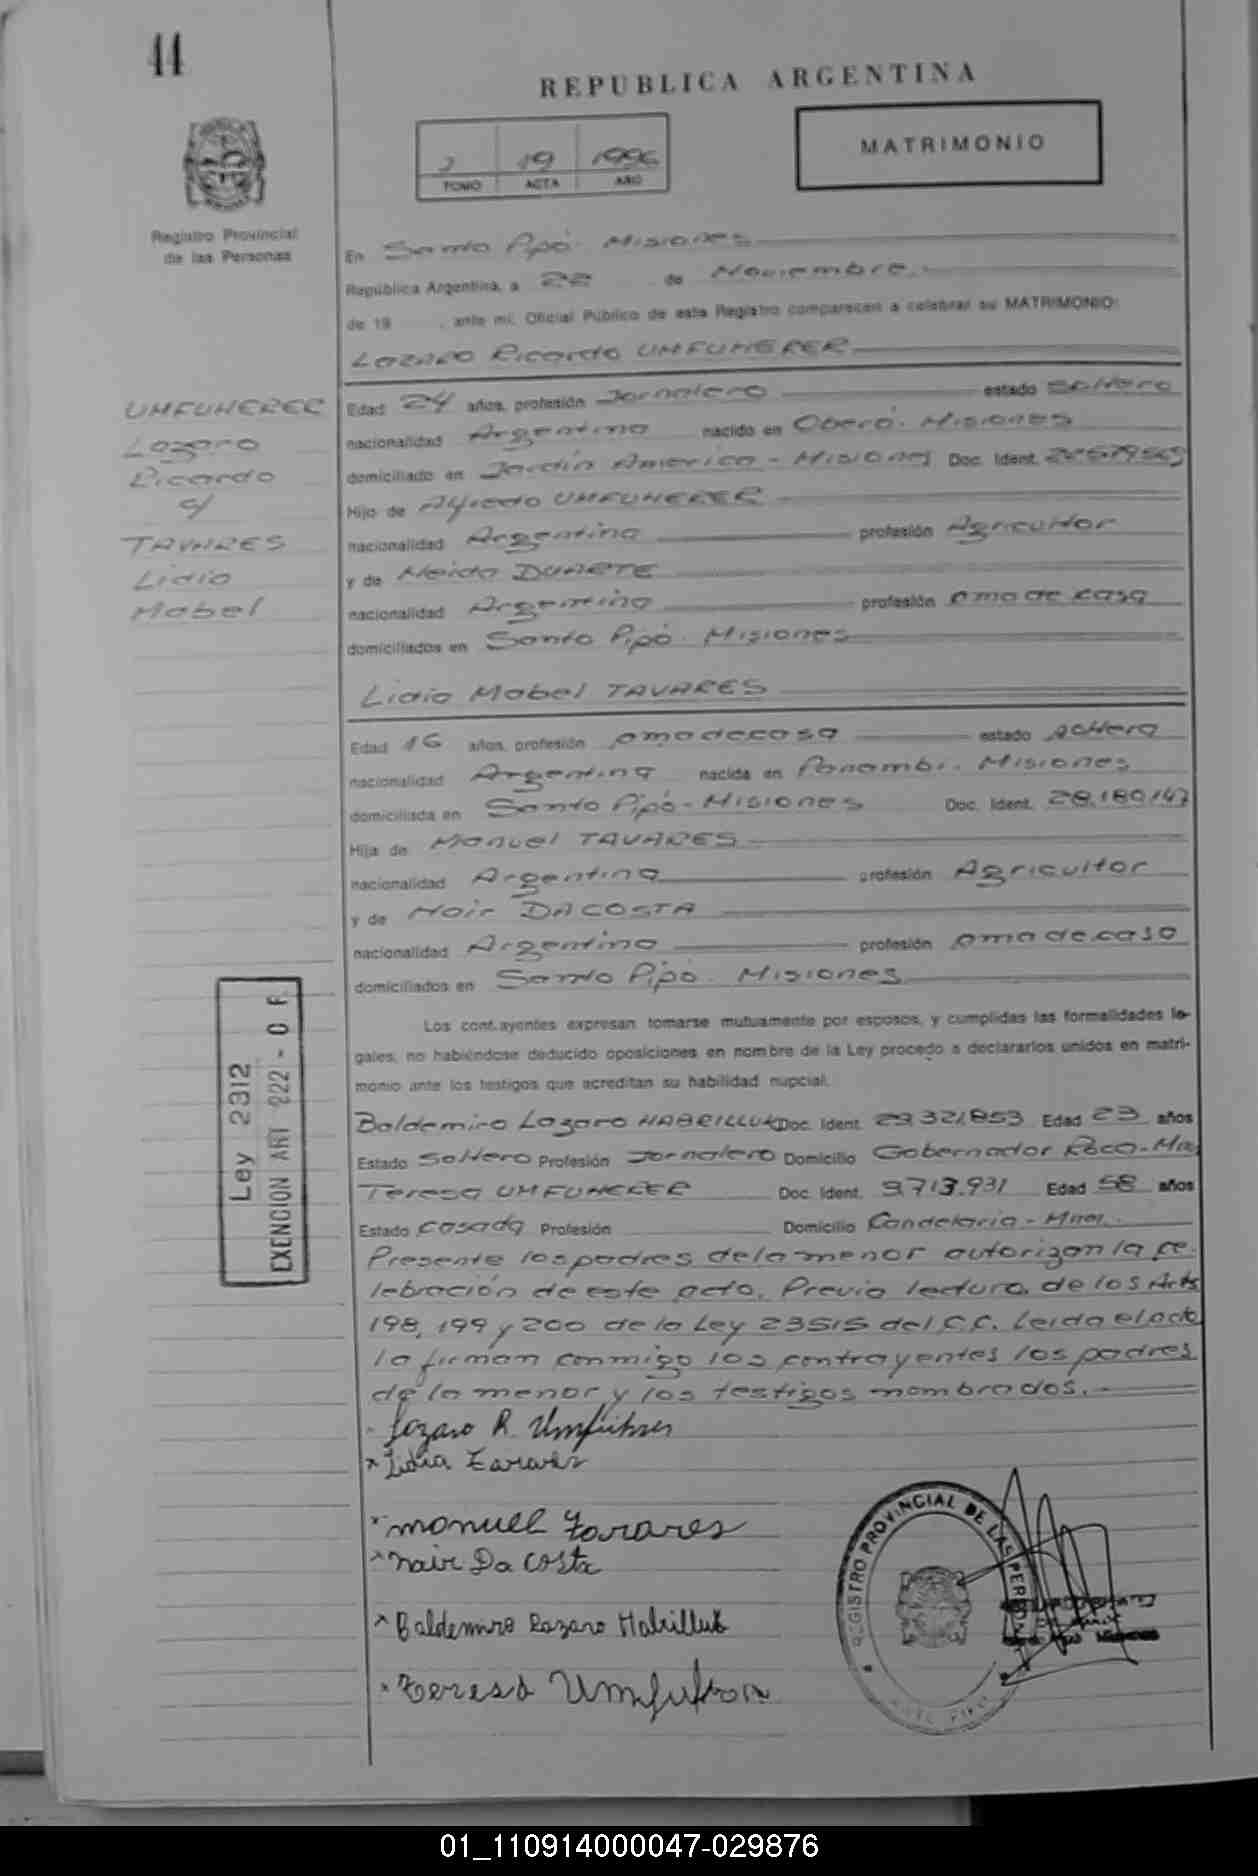 44
REPUBLICA ARGENTINA
MATRIMONIO
19 1996
TOMO ACTA AÑO
Registro Provincial
de las Personas
En Santo Pipó. Misiones
República Argentina, a 22 de Noviembre.
de 19 , ante mi, Oficial Público de este Registro comparecen a celebrar su MATRIMONIO:
Lazaro Ricardo UMFUHERER
UMFUHERER
Lazaro
Ricardo
c/
TAVARES
Lidia
Mabel
Edad 24 años, profesión Jornalero estado Soltero
nacionalidad Argentina nacido en Oberá. Misiones
domiciliado en Jardín America - Misiones Doc. Ident.
Hijo de Alfredo UMFUHERER
nacionalidad Argentina profesión Agricultor
y de Neida DUARTE
nacionalidad Argentina profesión ama de casa
domiciliados en Santo Pipó. Misiones
Lidia Mabel TAVARES
Edad 16 años, profesión ama de casa estado soltera
nacionalidad Argentina nacida en Panambí. Misiones
domiciliada en Santo Pipó - Misiones Doc. Ident. 28.180.147
Hija de Manuel TAVARES
nacionalidad Argentina profesión Agricultor
y de Nair DACOSTA
nacionalidad Argentina profesión ama de casa
domiciliados en Santo Pipó. Misiones
Los contrayentes expresan tomarse mutuamente por esposos, y cumplidas las formalidades le-
gales, no habiéndose deducido oposiciones en nombre de la Ley procedo a declararlos unidos en matri-
monio ante los testigos que acreditan su habilidad nupcial.
Baldemiro Lazaro HABRILLUK Doc. Ident. 23.321.853 Edad 23 años
Estado Soltero Profesión Jornalero Domicilio Gobernador Roca - Mis
Teresa UMFUHERER Doc. Ident. 9.713.931 Edad 58 años
Estado casada Profesión Domicilio Candelaria - Mnes.
Presente los padres de la menor autorizan la ce-
lebración de este acto. Previa lectura de los Arts
198, 199 y 200 de la Ley 23515 del C.C. Leida el acta
la firman conmigo los contrayentes los padres
de la menor y los testigos nombrados. -
Ley 2312
EXENCION ART 222 - O F.
Lazaro R. Umfuhrer
x Lidia Tavares
x manuel Tavares
x nair Da Costa
x Baldemiro Lazaro Habrilluk
x Teresa
REGISTRO PROVINCIAL DE LAS PERSONAS
01_110914000047-029876